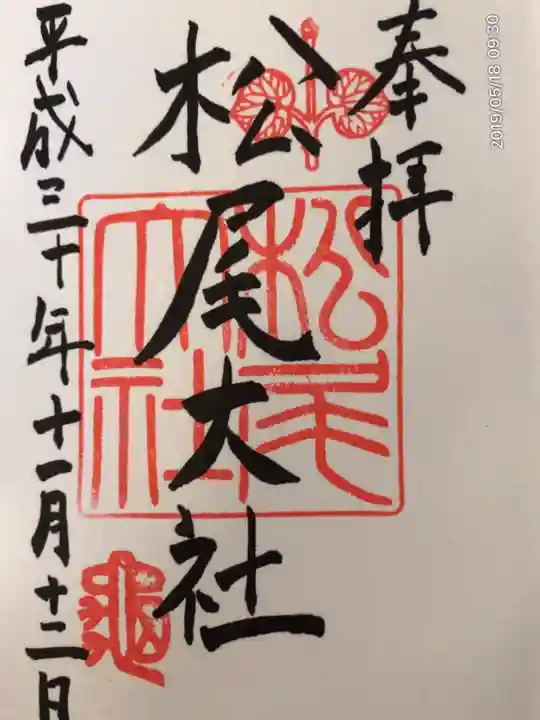 奉拝
松尾大社
平成三十年十一月十二日
松尾
大社
亀
2019/05/18 09:30